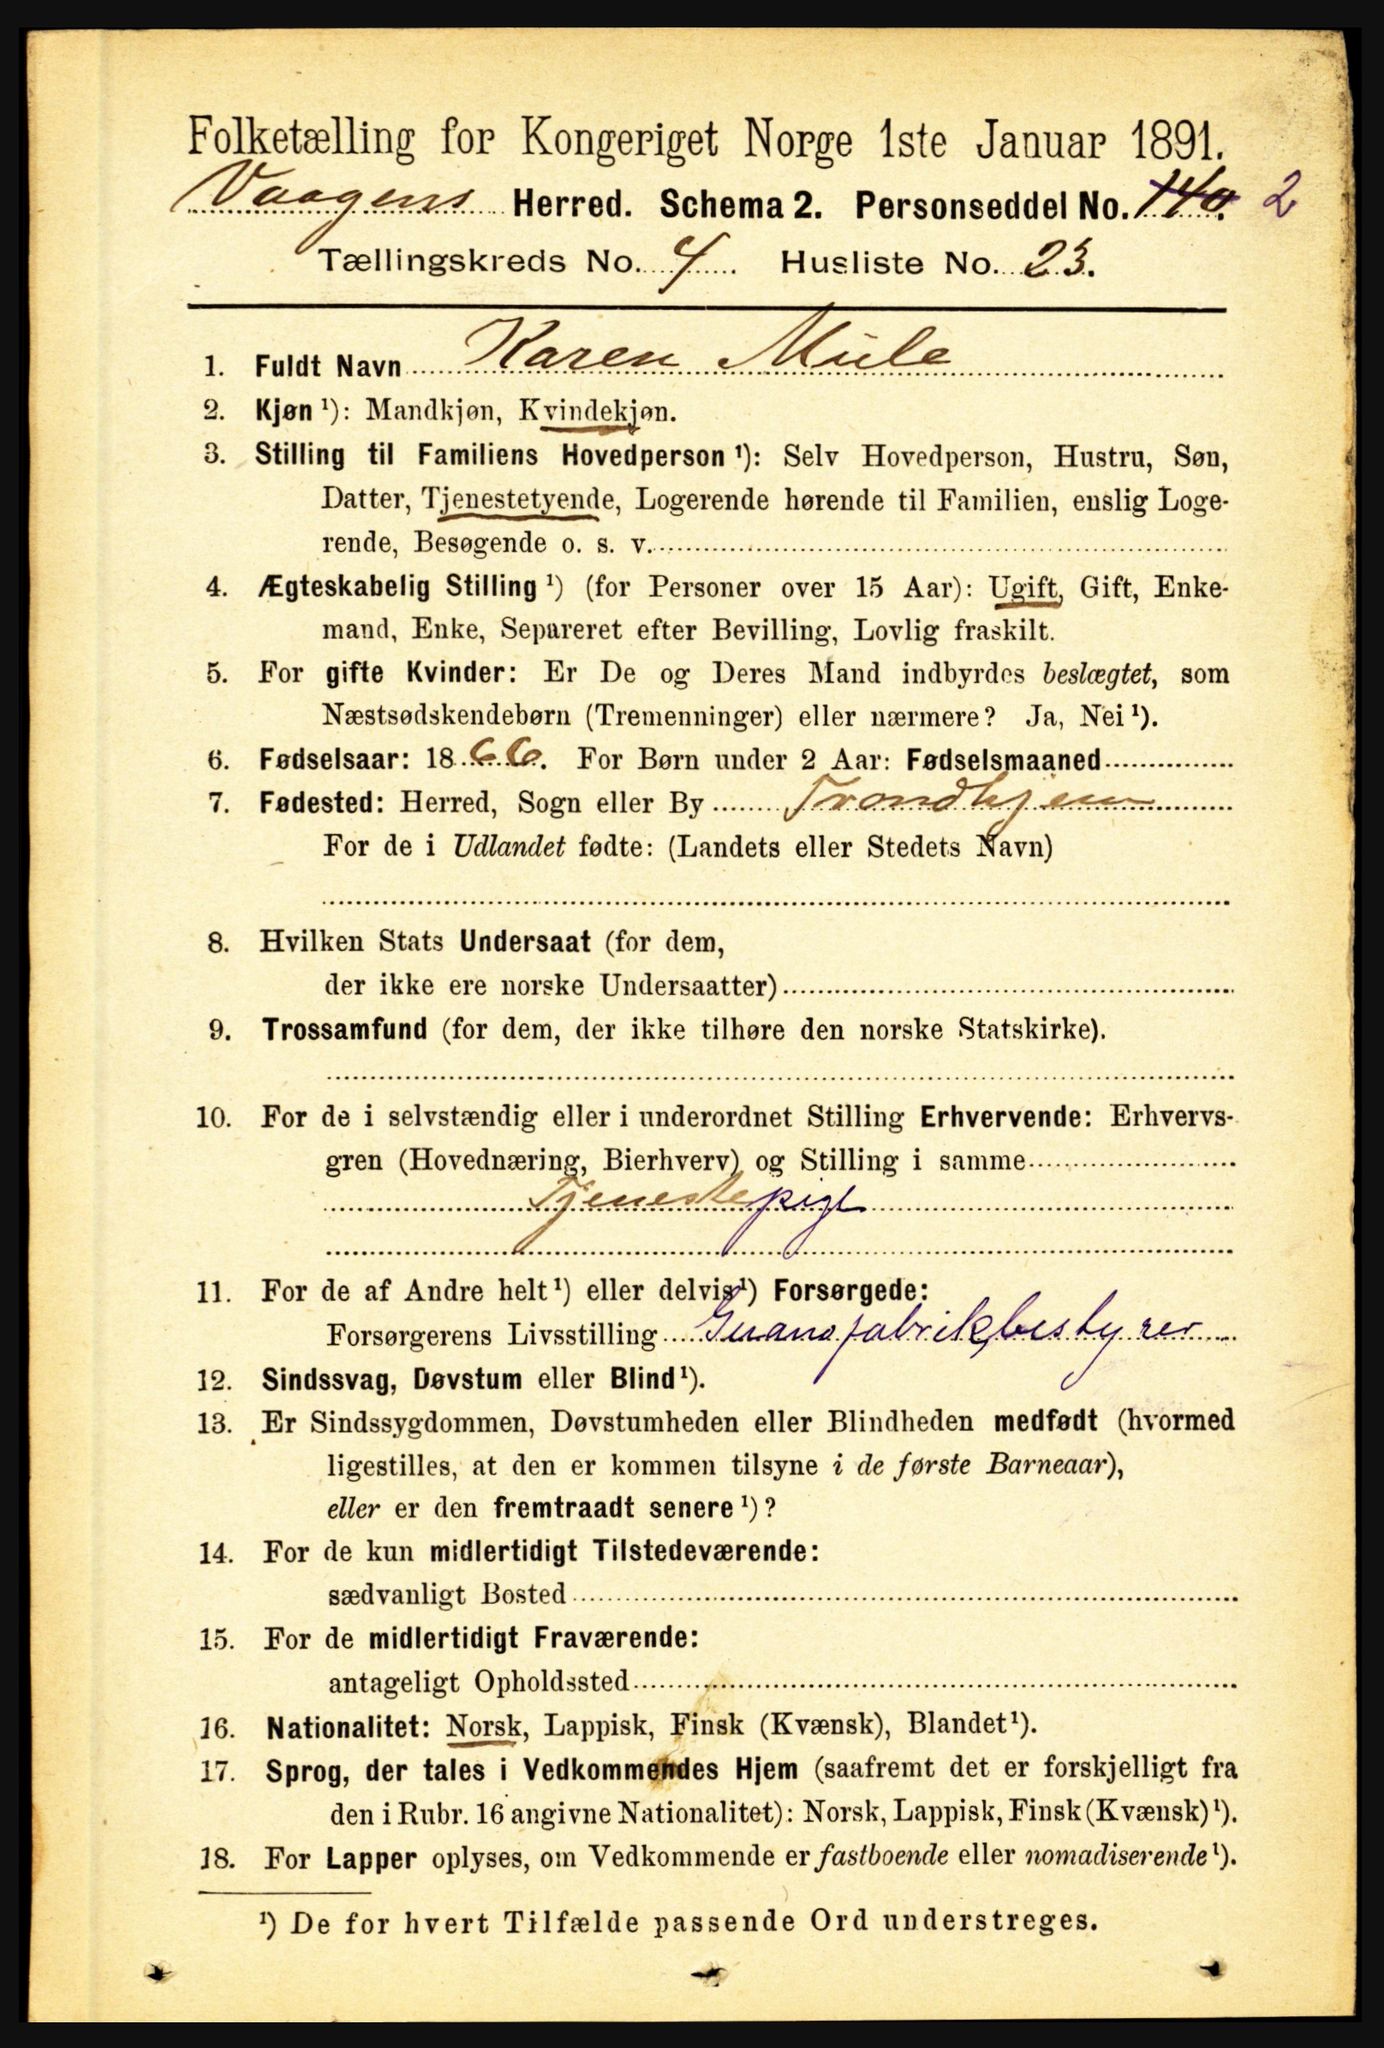 Folketælling for Kongeriget Norge 1ste Januar 1891.
Vaagens Herred. Schema 2. Personseddel No. 140. 2
Tællingskreds No. 4 Husliste No. 23.
1. Fuldt Navn Karen Mule
2. Kjøn ¹): Mandkjøn, Kvindekjøn.
3. Stilling til Familiens Hovedperson ¹): Selv Hovedperson, Hustru, Søn,
Datter, Tjenestetyende, Logerende hørende til Familien, enslig Loge-
rende, Besøgende o. s. v.
4. Ægteskabelig Stilling ¹) (for Personer over 15 Aar): Ugift, Gift, Enke-
mand, Enke, Separeret efter Bevilling, Lovlig fraskilt.
5. For gifte Kvinder: Er De og Deres Mand indbyrdes beslægtet, som
Næstsødskendebørn (Tremenninger) eller nærmere? Ja, Nei ¹).
6. Fødselsaar: 1866. For Børn under 2 Aar: Fødselsmaaned
7. Fødested: Herred, Sogn eller By Trondhjem
For de i Udlandet fødte: (Landets eller Stedets Navn)
8. Hvilken Stats Undersaat (for dem,
der ikke ere norske Undersaatter)
9. Trossamfund (for dem, der ikke tilhøre den norske Statskirke).
10. For de i selvstændig eller i underordnet Stilling Erhvervende: Erhvervs-
gren (Hovednæring, Bierhverv) og Stilling i samme
Tjenestepige
11. For de af Andre helt ¹) eller delvis ¹) Forsørgede:
Forsørgerens Livsstilling Guanofabrikbestyrer
12. Sindssvag, Døvstum eller Blind ¹).
13. Er Sindssygdommen, Døvstumheden eller Blindheden medfødt (hvormed
ligestilles, at den er kommen tilsyne i de første Barneaar),
eller er den fremtraadt senere ¹)?
14. For de kun midlertidigt Tilstedeværende:
sædvanligt Bosted
15. For de midlertidigt Fraværende:
antageligt Opholdssted
16. Nationalitet: Norsk, Lappisk, Finsk (Kvænsk), Blandet ¹).
17. Sprog, der tales i Vedkommendes Hjem (saafremt det er forskjelligt fra
den i Rubr. 16 angivne Nationalitet): Norsk, Lappisk, Finsk (Kvænsk) ¹).
18. For Lapper oplyses, om Vedkommende er fastboende eller nomadiserende ¹).
¹) De for hvert Tilfælde passende Ord understreges.